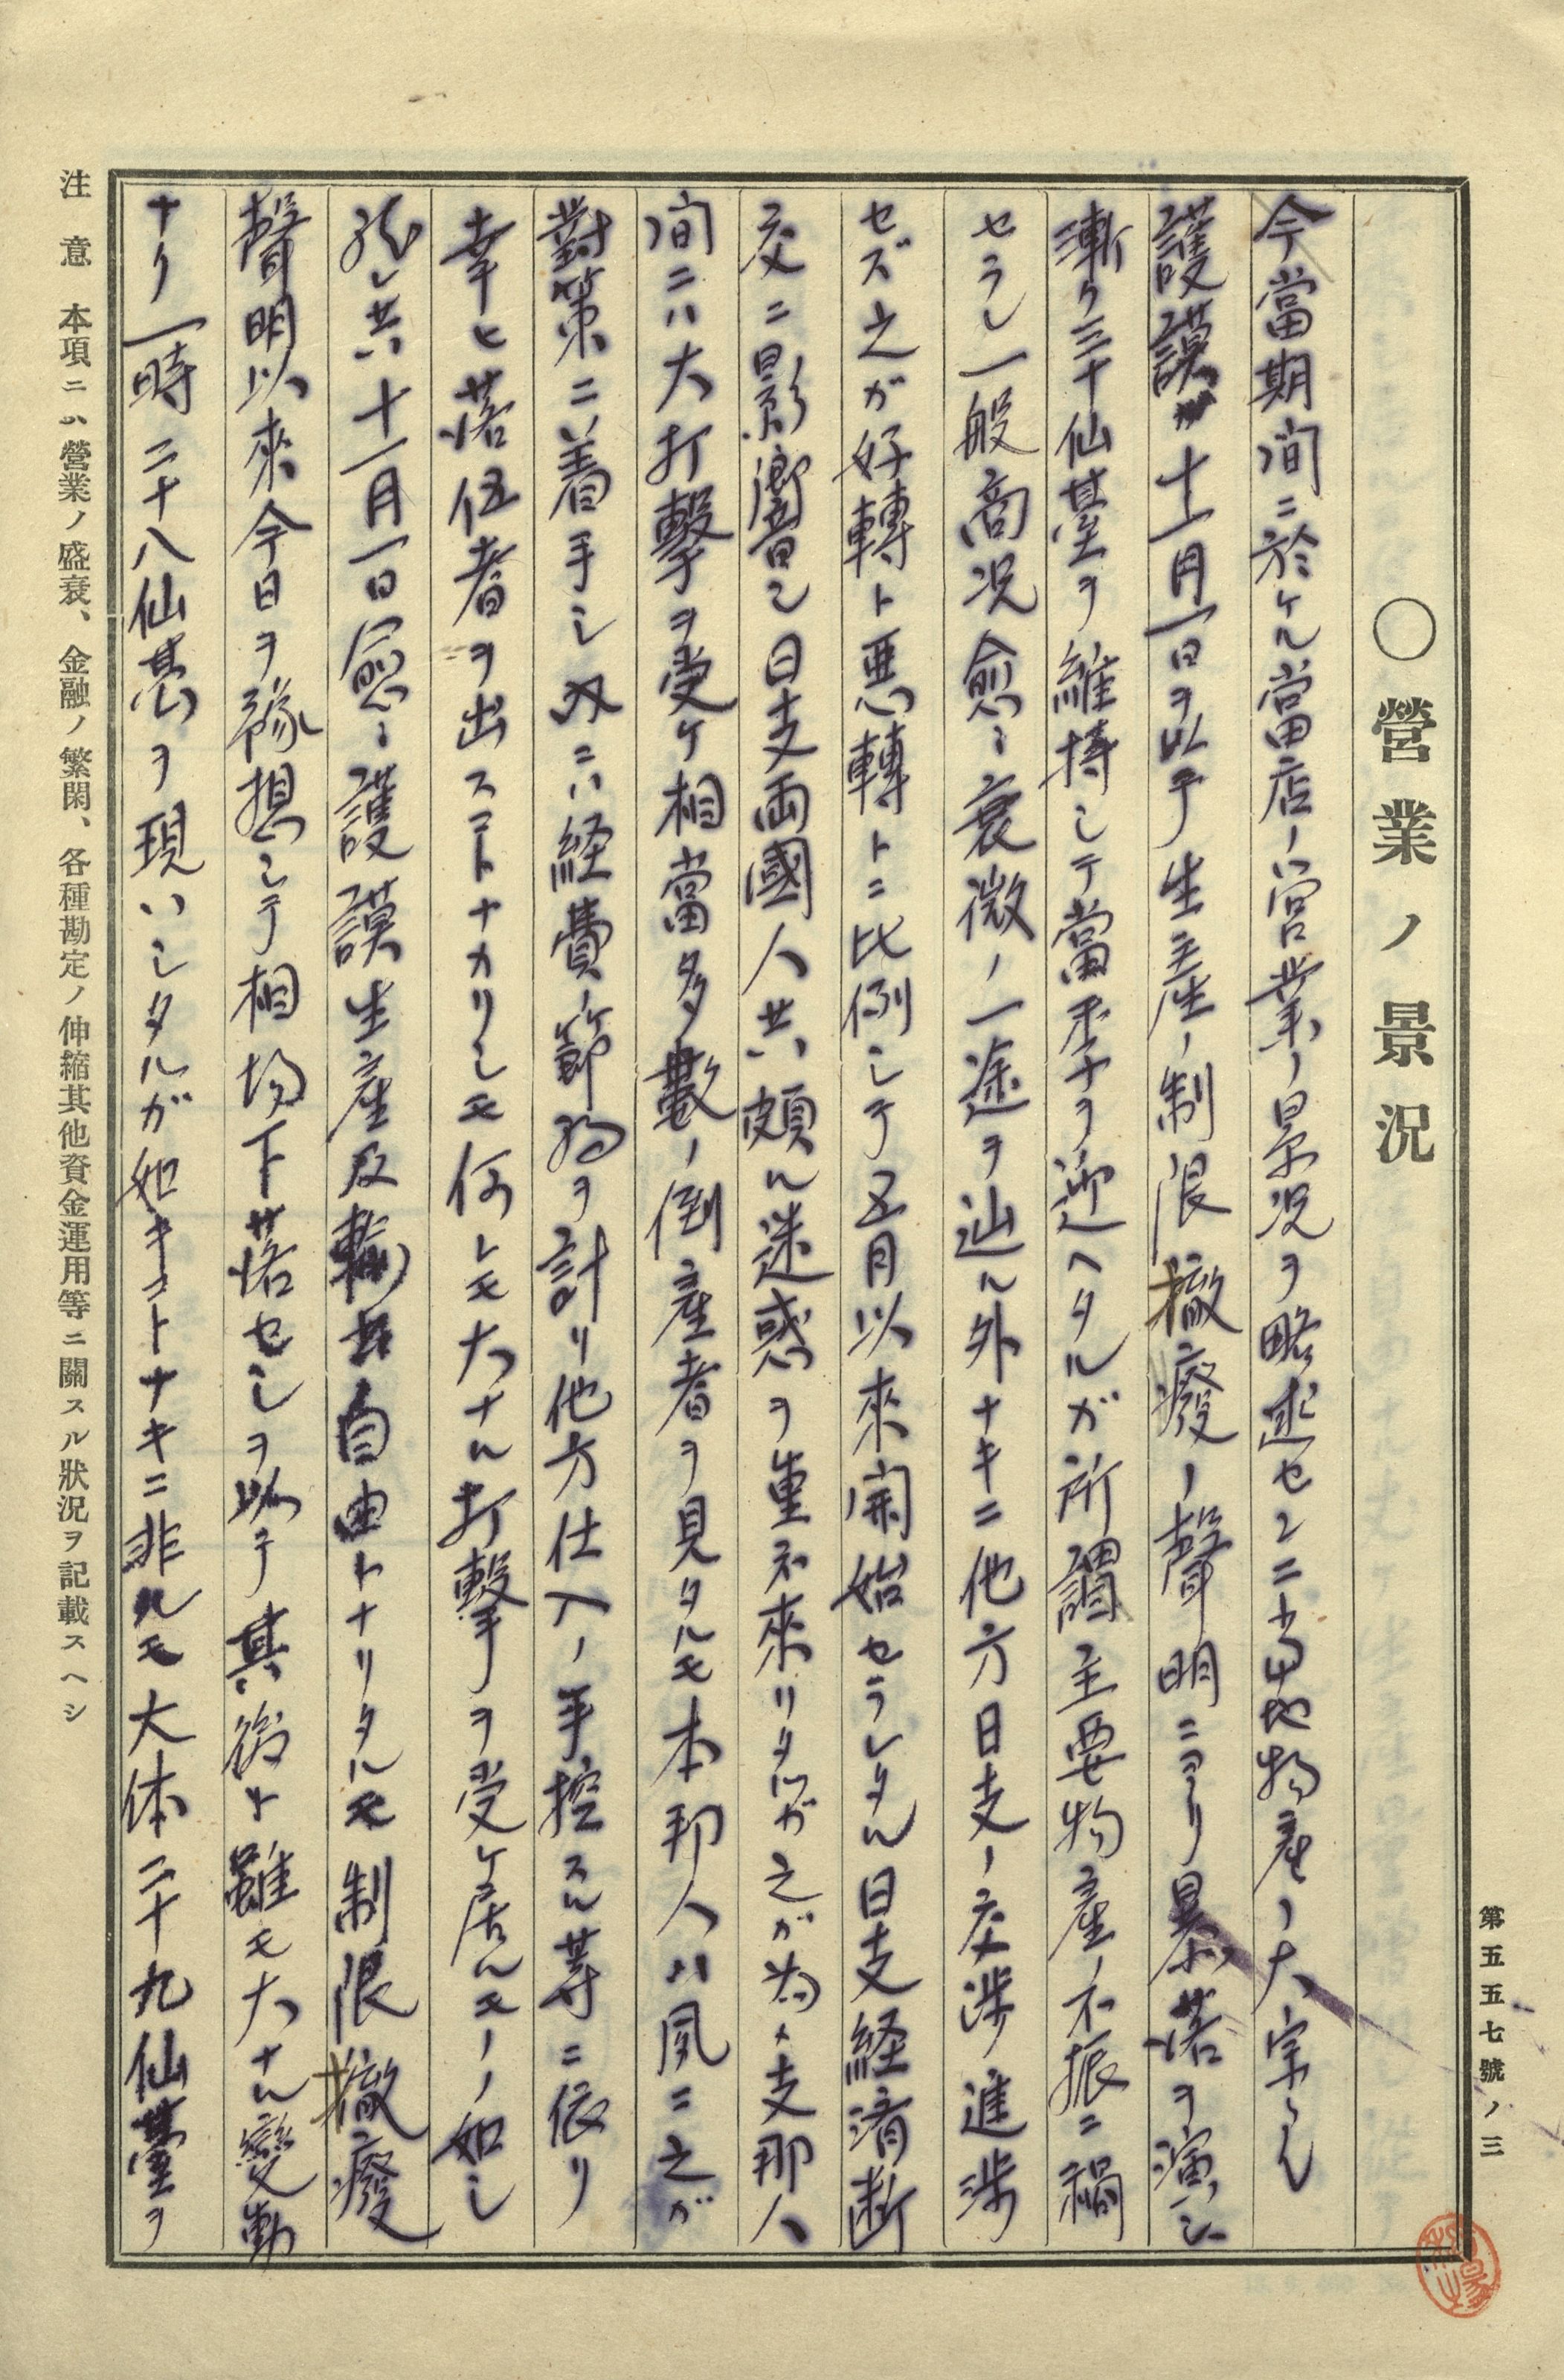 第五五七號ノ三
○營業ノ景況
今當期間ニ於ケル當店ノ営業ノ景況ヲ略述センニ当地物産ノ大宗タル
護謨十一月一日ヲ以テ生産ノ制限撤廢ノ聲明ニヨリ暴落ヲ演シ
漸ク三十仙臺ヲ維持シテ當季ヲ迎ヘタルガ所謂主要物産ノ不振ニ禍
セラレ一般商況愈々衰微ノ一途ヲ辿ル外ナキニ他方日支ノ交渉進渉
セズ之ガ好轉ト悪轉トニ比例シテ五月以來開始セラレタル日支経済断
交ニ影響シ日支両國人共頗ル迷惑ヲ重ネ來リタルガ之ガ為メ支那人
間ニハ大打撃ヲ受ケ相當多數ノ倒産者ヲ見タルモ本邦人ハ夙ニ之ガ
對策ニ着手シ双ニハ経費ノ節約ヲ計リ他方仕入ノ手控スル等ニ依リ
幸ヒ落伍者ヲ出スコトナカリシモ何レモ大ナル打撃ヲ受ケ居ルモノノ如シ
然レ共十一月一日愈々護謨生産及輸出自由トナリタルモ制限撤廢
聲明以來今日ヲ豫想シテ相場下落セシヲ以テ其後ト雖モ大ナル變動
ナク一時二十八仙臺ヲ現ハシタルガ如キコトナキニ非ルモ大体二十九仙臺ヲ
注意 本項ニハ營業ノ盛衰、金融ノ繁閑、各種勘定ノ伸縮其他資金運用等ニ關スル狀況ヲ記載スヘシ